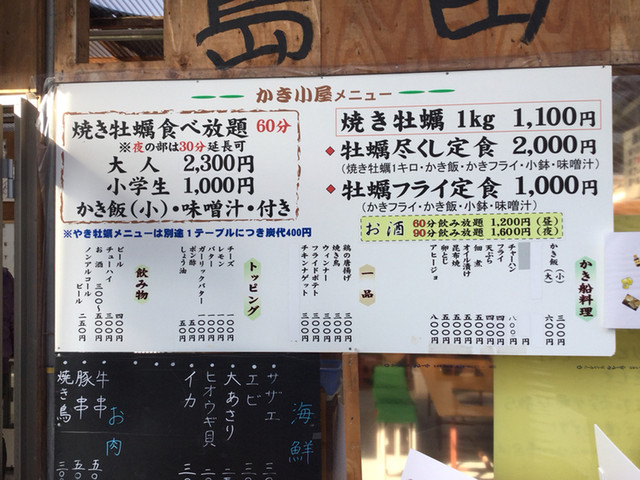 かき小屋メニュー
焼き牡蠣食べ放題 60分
※夜の部は30分延長可
大人 2,300円
小学生 1,000円
かき飯(小)・味噌汁・付き
※やき牡蠣メニューは別途1テーブルにつき炭代400円
焼き牡蠣 1kg 1,100円
牡蠣尽くし定食 2,000円
(焼き牡蠣1キロ・かき飯・かきフライ・小鉢・味噌汁)
牡蠣フライ定食 1,000円
(かき飯・かきフライ・小鉢・味噌汁)
お酒 60分飲み放題 1,200円(昼)
90分飲み放題 1,600円(夜)
かき船料理
かき飯(小) 三〇〇円
(大) 六〇〇円
チャーハン 八〇〇円
フライ
天ぷら
佃煮
オイル漬け
昆布焼
卵とじ
アヒージョ
一品
鶏の唐揚げ
焼き鳥
ウィンナー
フライドポテト
チキンナゲット
トッピング
チーズ 一〇〇円
レモン 一〇〇円
バター 一〇〇円
ガーリックバター 一〇〇円
ポン酢 五〇円
しょう油 五〇円
飲み物
ビール 四〇〇円
チューハイ 三〇〇円
お酒 三〇〇〜五〇〇円
ノンアルコールビール 二五〇円
海鮮
サザエ
エビ
大あさり
ヒオウギ貝
イカ
お肉
牛串
豚串
焼き鳥